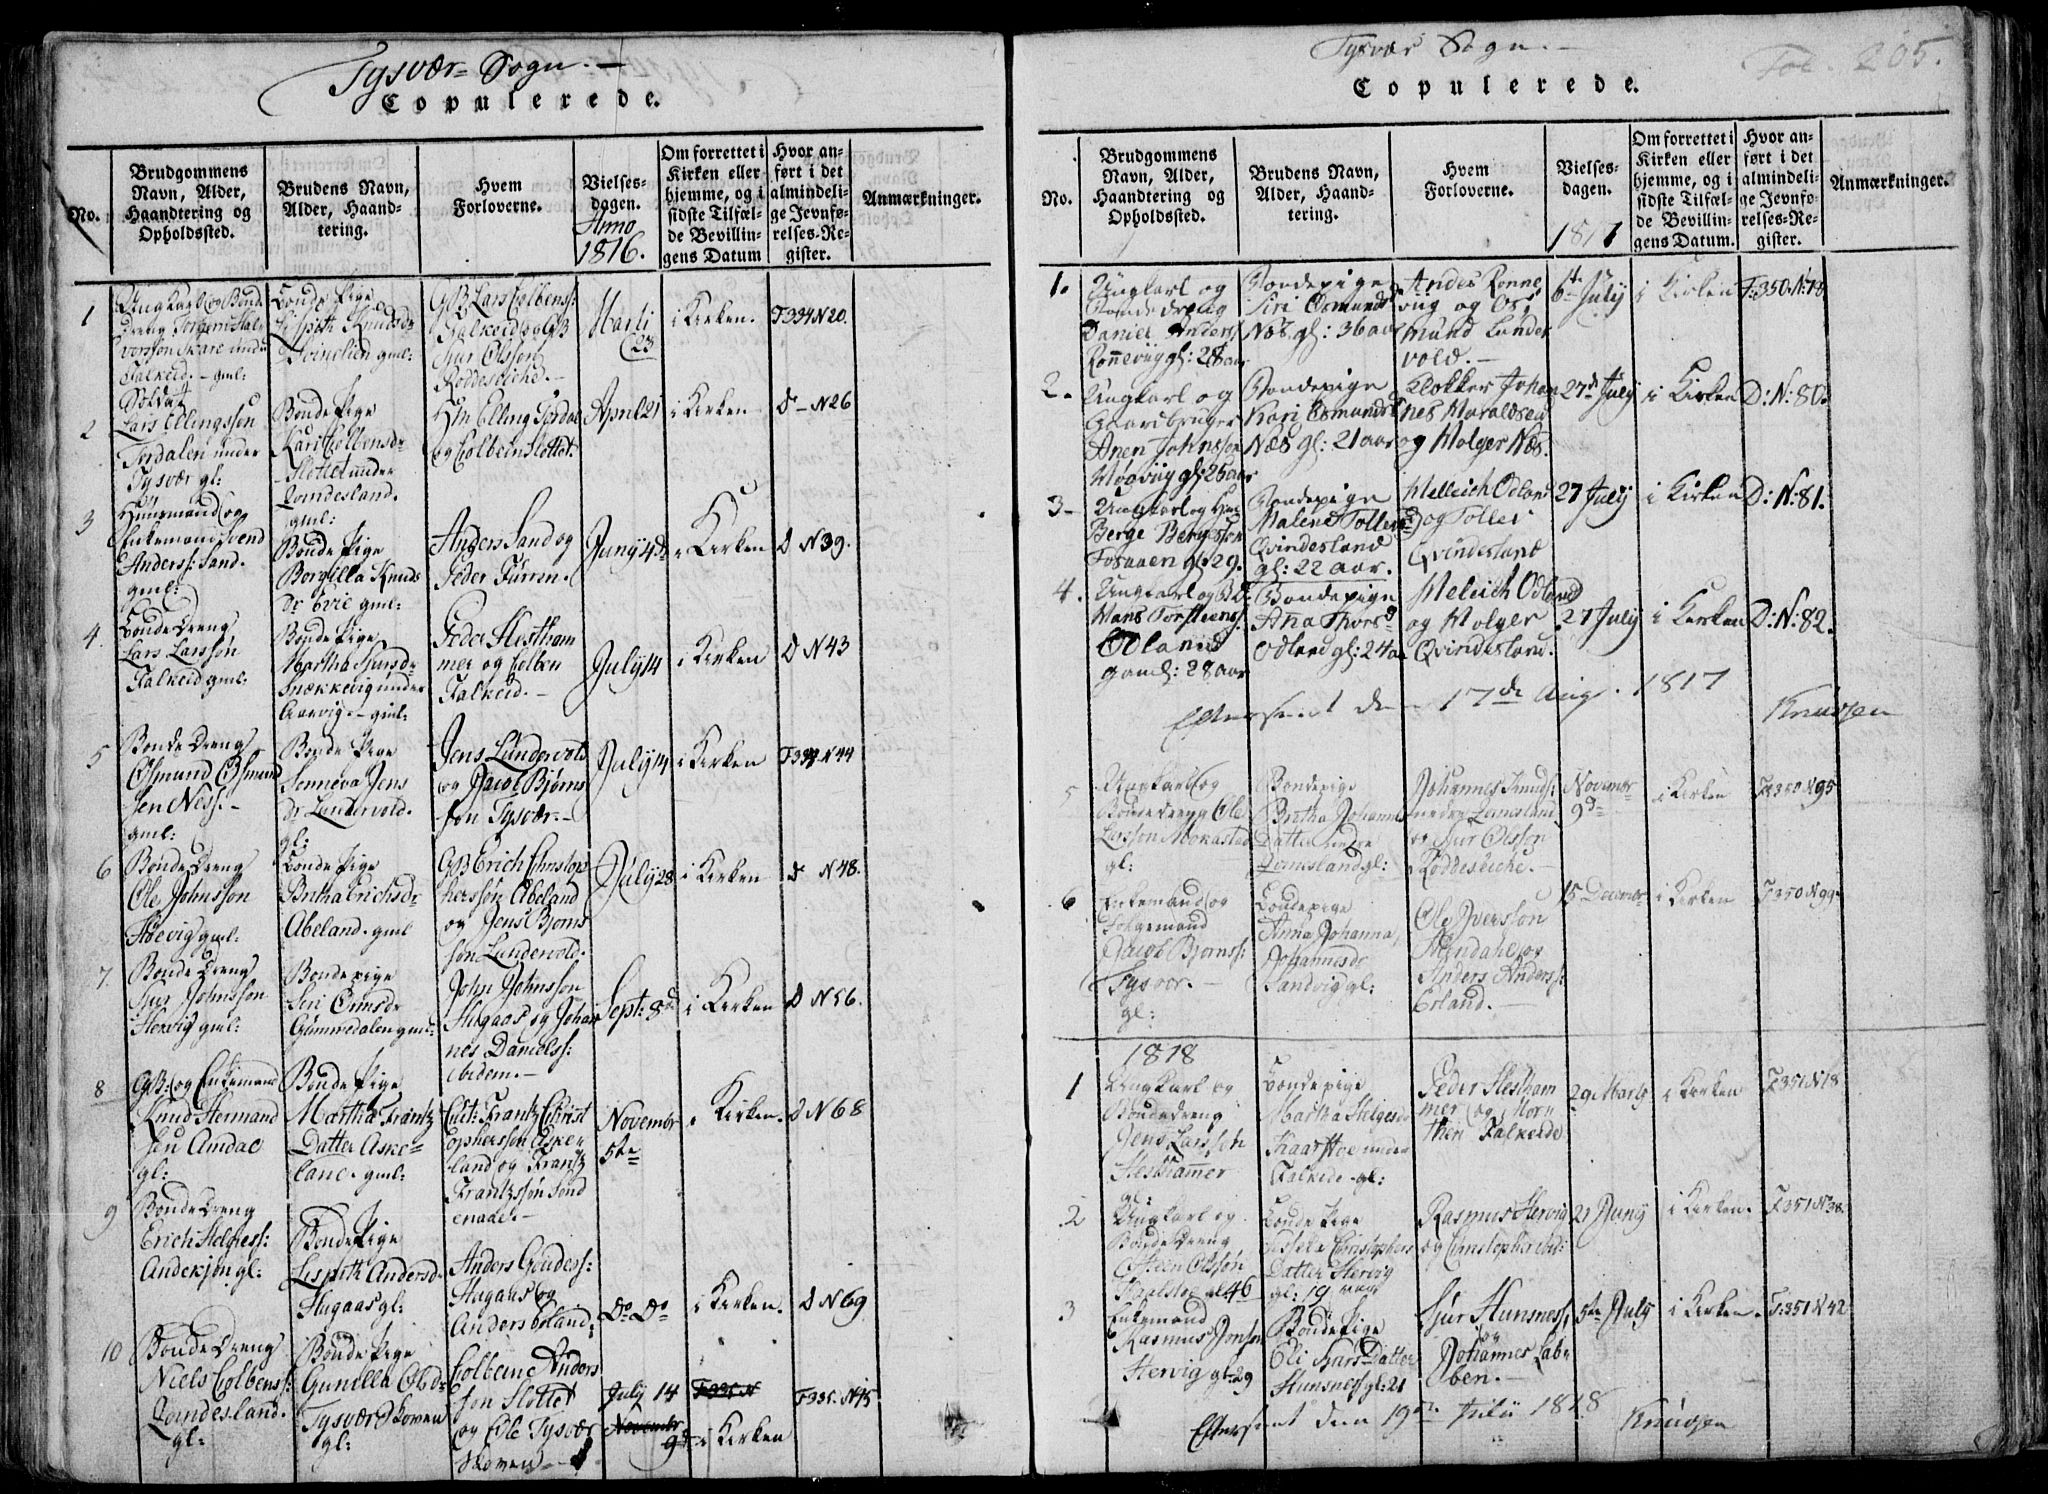 Tysvær Sogn. —
Copulerede.
No.
Brudgommens
Navn, Alder,
Haandtering og
Opholdssted.
Brudens Navn,
Alder, Haand-
tering.
Hvem
Forloverne.
Vielses-
dagen.
Anno
1816.
Om forrettet i
Kirken eller
hjemme, og i
sidste Tilfæl-
de Bevillin-
gens Datum
Hvor an-
ført i det
almindeli-
ge Jevnfø-
relses-Re-
gister.
Anmærkninger.
1
Ungkarl og Bonde
Falkeid. — gml:
Bonde Pige
Lispith Knudsdr
gml:
GB Lars Colbenss:
Falkeid og GB
Siur Olsson
Røddeseiche. —
Marti
23
i Kirken.
F334 N20.
2
Soldat
Lars Ellingssøn
Førdalen under
Tysvær gl:
Bonde Pige
Kari Colbensdr
Slottet under
Qvindesland.
gml:
Hm Elling Førdal
og Colbein Slottet.
April 21
i Kirken
D — N26
3
Huusmand og
Enkemand Svend
Anderss: Sand.
gml:
Bonde Pige
Borgilla Knuds
dr Evie gml:
Anders Sand og
Peder Furren.
Juny 4de
i Kirken
D N39.
4.
Bonde Dreng
Lars Larssøn
Falkeid gml:
Bonde Pige
Martha Siursdr
Snækkevig under
Aarvig. — gml:
Peder Hestham
mer og Colben
Falkeid. —
July 14
i Kirken
D N43
5
Bonde Dreng
Osmund Osmund
sen Nes. —
gml:
Bonde Pige
Sonneva Jens
dr Lundervold.
gl:
Jens Lundervold
og Jacob Bjørns
søn Tysvær. —
July 14
i Kirken
F334 N44
6
Bonde Dreng
Ole Johnssøn
Høevig gml:
Bonde Pige
Britha Erichsdr
Abeland. gml
GB Erich Christop
herssøn Abeland
og Jens Bjørns
søn Lundervold.
July 28
i Kirken
D N48.
7.
Bonde Dreng
Siur Johnssøn
Hervig gml:
Bondepige
Siri Ormsdr
Gummedalen gml:
John Johnsson
Hugaas og Johan
nes Danielss:
ibidem. —
Sept: 8de
i Kirken
D N56.
8
GB: og Enkemand
Knud Hermand
sen Amdal
gl:
Bonde Pige
Martha Frantz
Datter Aske-
land. gml:
Cult: Frantz Christ
ophersson Aske
land og Frantz
Frantzssøn Sønd
enaae. —
Novembr
5te
i Kirken.
D N68
9
Bonde Dreng
Erich Helgess:
gl:
Bonde Pige
Lispith Andersdr
Hugaas gl:
Anders Goudess:
Hugaas og
Anders Erland:
Do Do
i Kirken.
D N69
10
Bonde Dreng
Niels Colbenss:
Qvindesland.
gl:
Bonde Pige
Gunilla
Tysvær Skoven
gl:
Colbeine Anders
søn Slottet
og Ole Tysvær
Skoven —
July 14
Novembr
9de
F335 N
i Kirken
F335. N45
Tysvær Sogn. —
Fol. 205.
Copulerede.
No.
Brudgommens
Navn, Alder,
Haandtering og
Opholdssted.
Brudens Navn,
Alder, Haand-
tering.
Hvem
Forloverne.
Vielses-
dagen.
1817
Om forrettet i
Kirken eller
hjemme, og i
sidste Tilfæl-
de Bevillin-
gens Datum.
Hvor an-
ført i det
almindeli-
ge Jevnfø-
relses-Re-
gister.
Anmærkninger.
1.
Ungkarl og
Bondedreng
Daniel Anders
Rønneviig gl: 28 aar
Bondepige
Siri Osmunds
Næs. gl: 36 aar
Andes Rønne
viig og Os-
mund Lunder
vold. —
6te July
i Kirken
F:350. N:78
2.
Ungkarl og
Gaardbruger
Anen Johnsson
Høgviig gl: 25 aar
Bondepige
Kari Osmundsd
Næs gl: 21 aar
Klokker Johan
nes Haraldseid
og Holger Næs.
27de July
i Kirken
D: N: 80.
3 —
Ungkarl og Hm
Berge Bergsson
Fosaaen gl: 29.
Bondepige
Malene Tollevsd
Qvindesland
gl: 22 aar.
Helleich Odland
og Tollev
Qvindesland
27 July
i Kirken
D: N: 81.
4.
Ungkarl og BD:
Hans Torsteens.
Odland
gaml: 28 aar
Bondepige
Ana Thorsd
Odland gl: 24 aar
Heleich Odland
og Holger
Qvindesland.
27 July
i Kirken
D: N: 82.
Efterseet den 17de Aug. 1817
Knudsen
5
Ungkarl og
Bondedreng Ole
Larsson Mokastad
gl:
Bondepige
Britha Johannes
Datter nedre
Qvindesland gl:
Johannes Knuds:
nedre Qvindesland
og Siur Olsson
Røddeseiche. —
Novembr
9de
i Kirken
F350 N95
6
Enkemand og
Følgemand
Jacob Bjørnss:
Tysvær. —
gl:
Bondepige
Anna Johanna
Johannesdr
Sandvig gl:
Ole Iversson
Stendahl og
Anders Anderss:
Erland. —
15 Decembr
i Kirken
F350 N99.
1818
1
Ungkarl og
Bondedreng
Jens Larssøn
Hesthammer
gl:
Bondepige
Martha Helgesdr
Kaarstoe under
Falkeide gl:
Peder Hestham
mer og Mor
then Falkeide
29 Marts
i Kirken
F351 N18
2
Ungkarl og
Bonde Dreng
Steen Olssøn
gl 46
Bonde Pige
Christophers
Datter Hervig
gl: 19
Rasmus Hervig
og Christopher ibid:
21 Juny
i Kirken.
F351 N38.
3
Enkemand
Rasmus Jonson
Hervig gl. 29
Bonde Pige
Eli Siurs Datter
Hunsnes gl: 21
Siur Hunsness,
og
Johannes
5te July
i Kirken.
F:351 N42
Efterseet den 19de Julii 1818
Knudsen